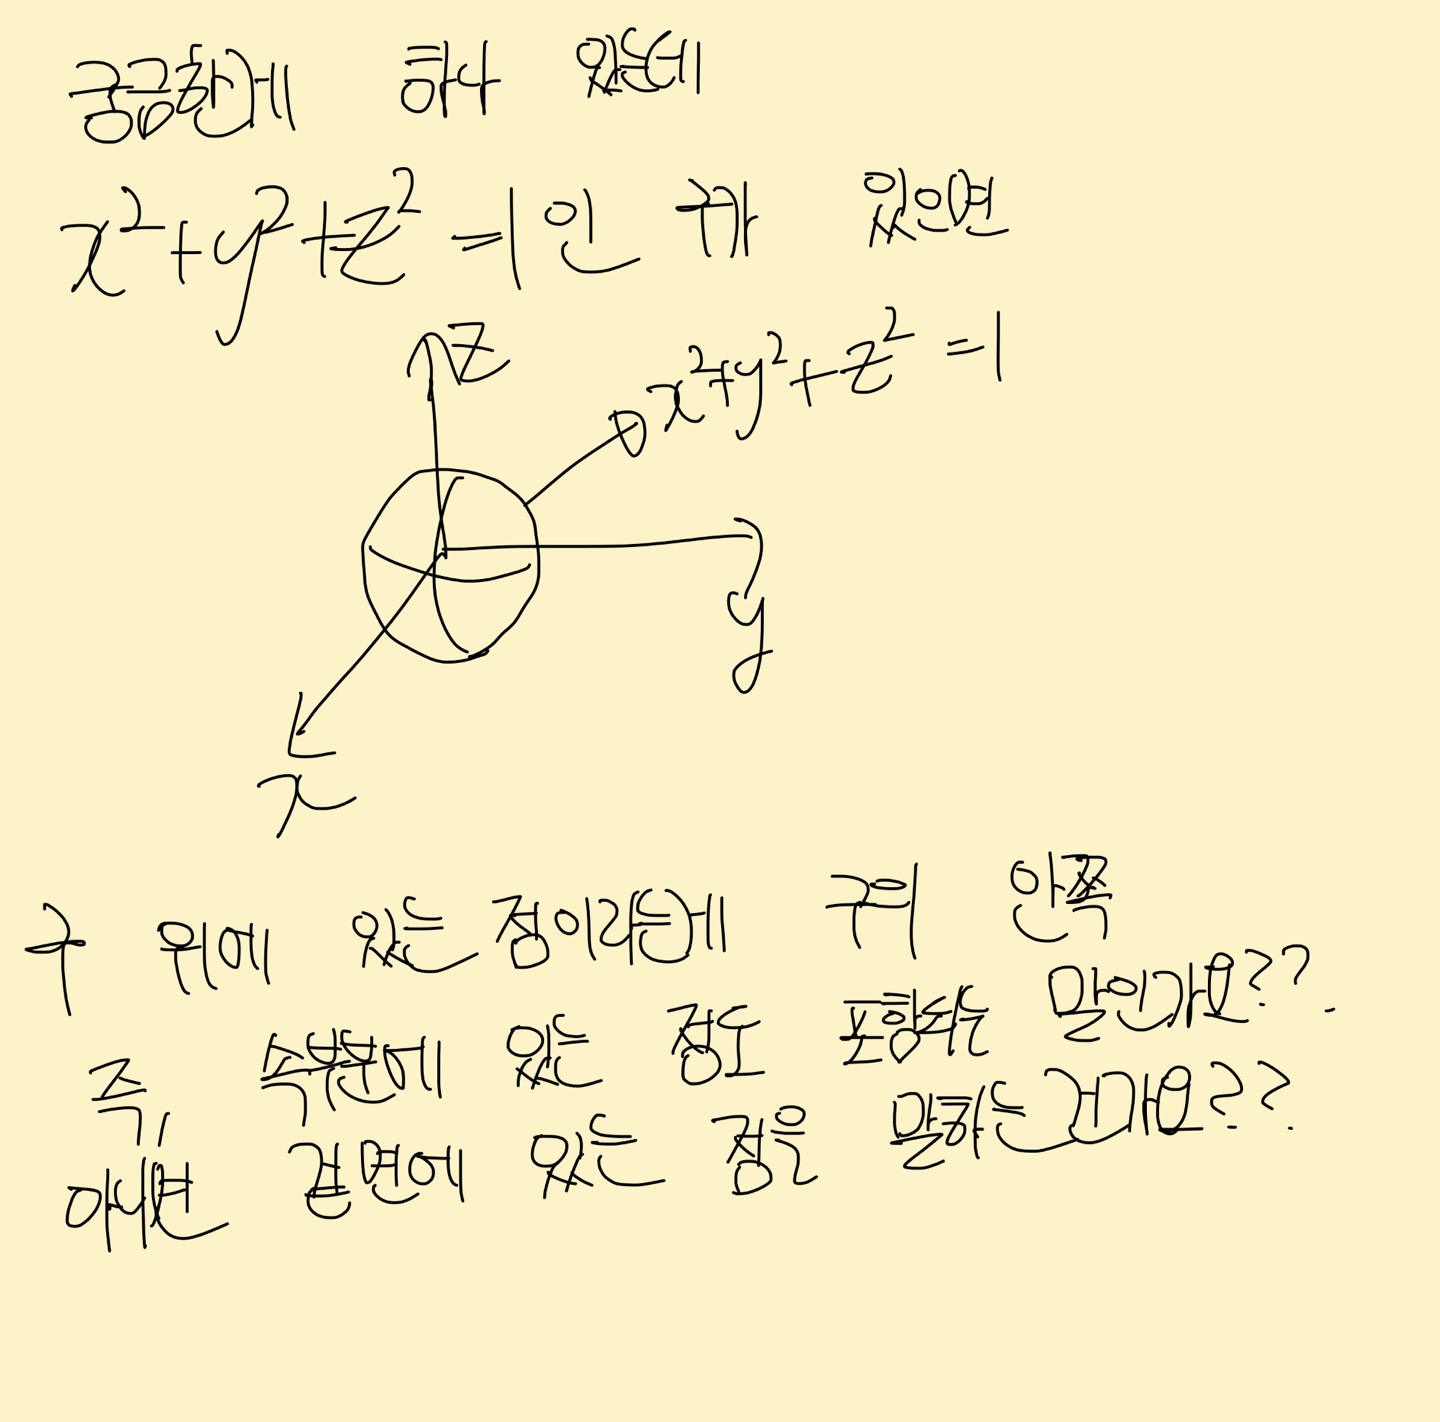 궁금한게 하나 있는데
x²+y²+z²=1인 구가 있으면
z
x²+y²+z²=1
y
x
구 위에 있는 점이라는게 구의 안쪽
즉, 속부분에 있는 점도 포함되는 말인가요??.
아니면 겉면에 있는 점을 말하는건가요??